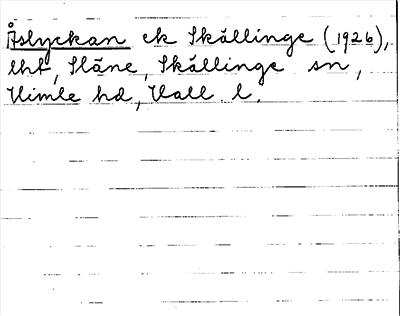 Åslyckan ek Skällinge (1926),
lht, Släne, Skällinge sn,
Himle hd, Hall l.